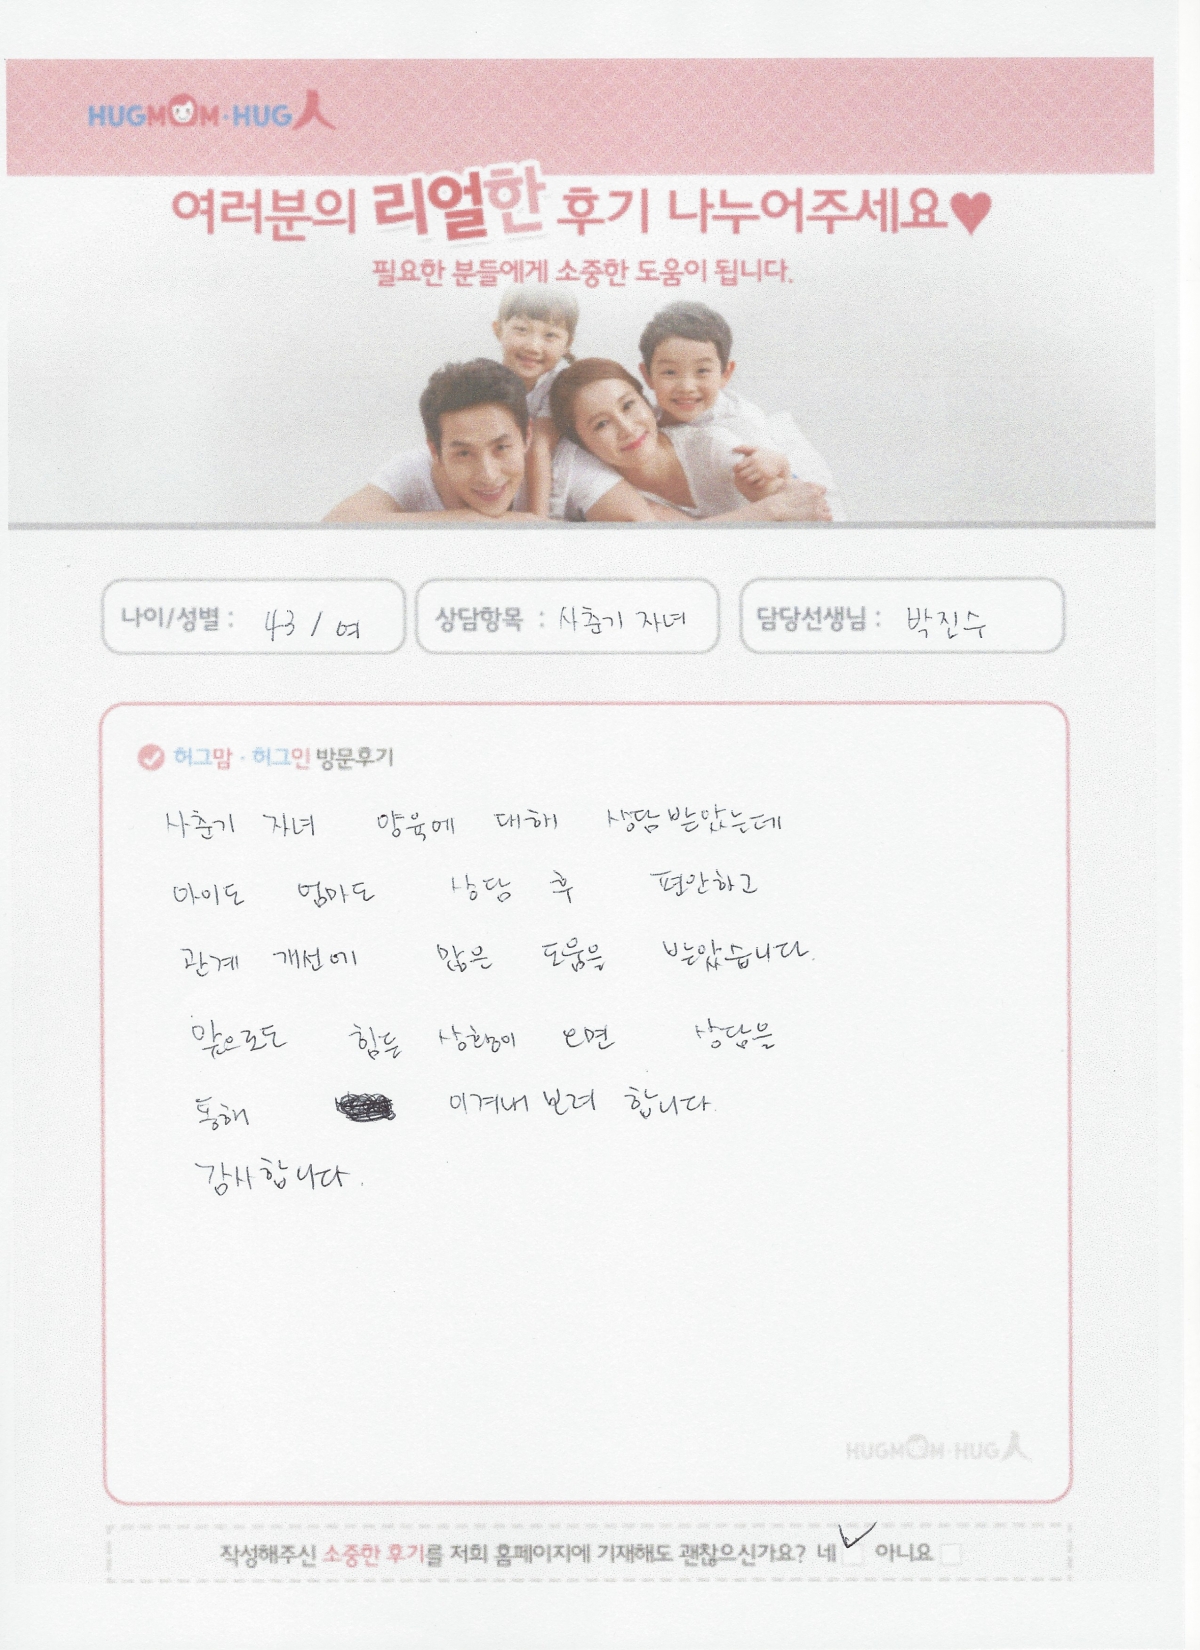 HUGMOM·HUG人
여러분의 리얼한 후기 나누어주세요♥
필요한 분들에게 소중한 도움이 됩니다.
나이/성별 : 43 / 여 상담항목 : 사춘기 자녀 담당선생님 : 박진수
허그맘 · 허그인 방문후기
사춘기 자녀 양육에 대해 상담받았는데
아이도 엄마도 상담 후 편안하고
관계 개선에 많은 도움을 받았습니다.
앞으로도 힘든 상황이 오면 상담을
통해 이겨내 보려 합니다.
감사합니다.
HUGMOM·HUG人
작성해주신 소중한 후기를 저희 홈페이지에 기재해도 괜찮으신가요? 네 ✓ 아니요 □